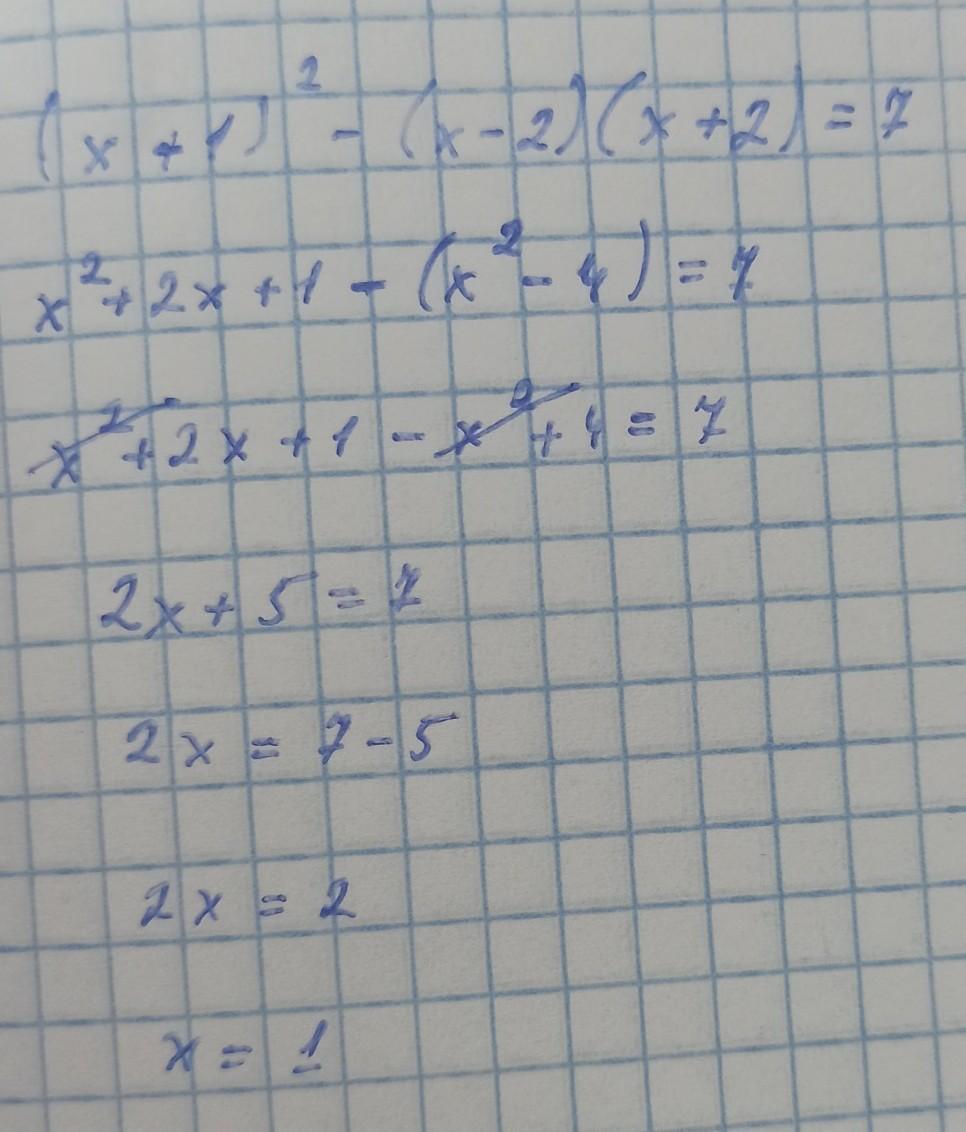 (x+1)² - (x-2)(x+2) = 7
x² + 2x + 1 - (x² - 4) = 7
x² + 2x + 1 - x² + 4 = 7
2x + 5 = 7
2x = 7 - 5
2x = 2
x = 1